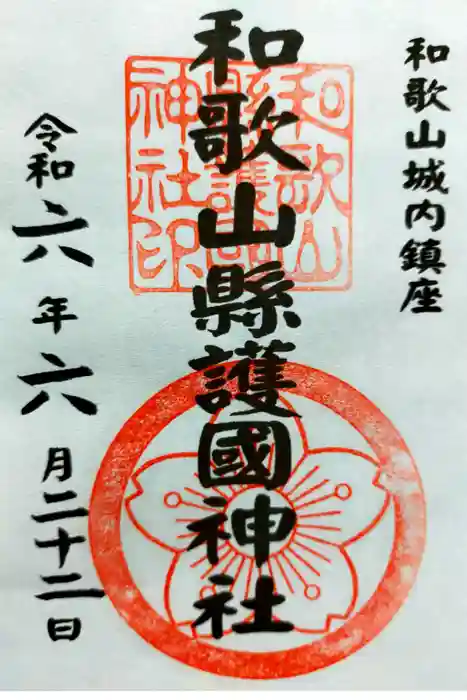 和歌山城内鎮座
和歌山縣護國神社
和歌山縣護國神社印
令和六年六月二十二日